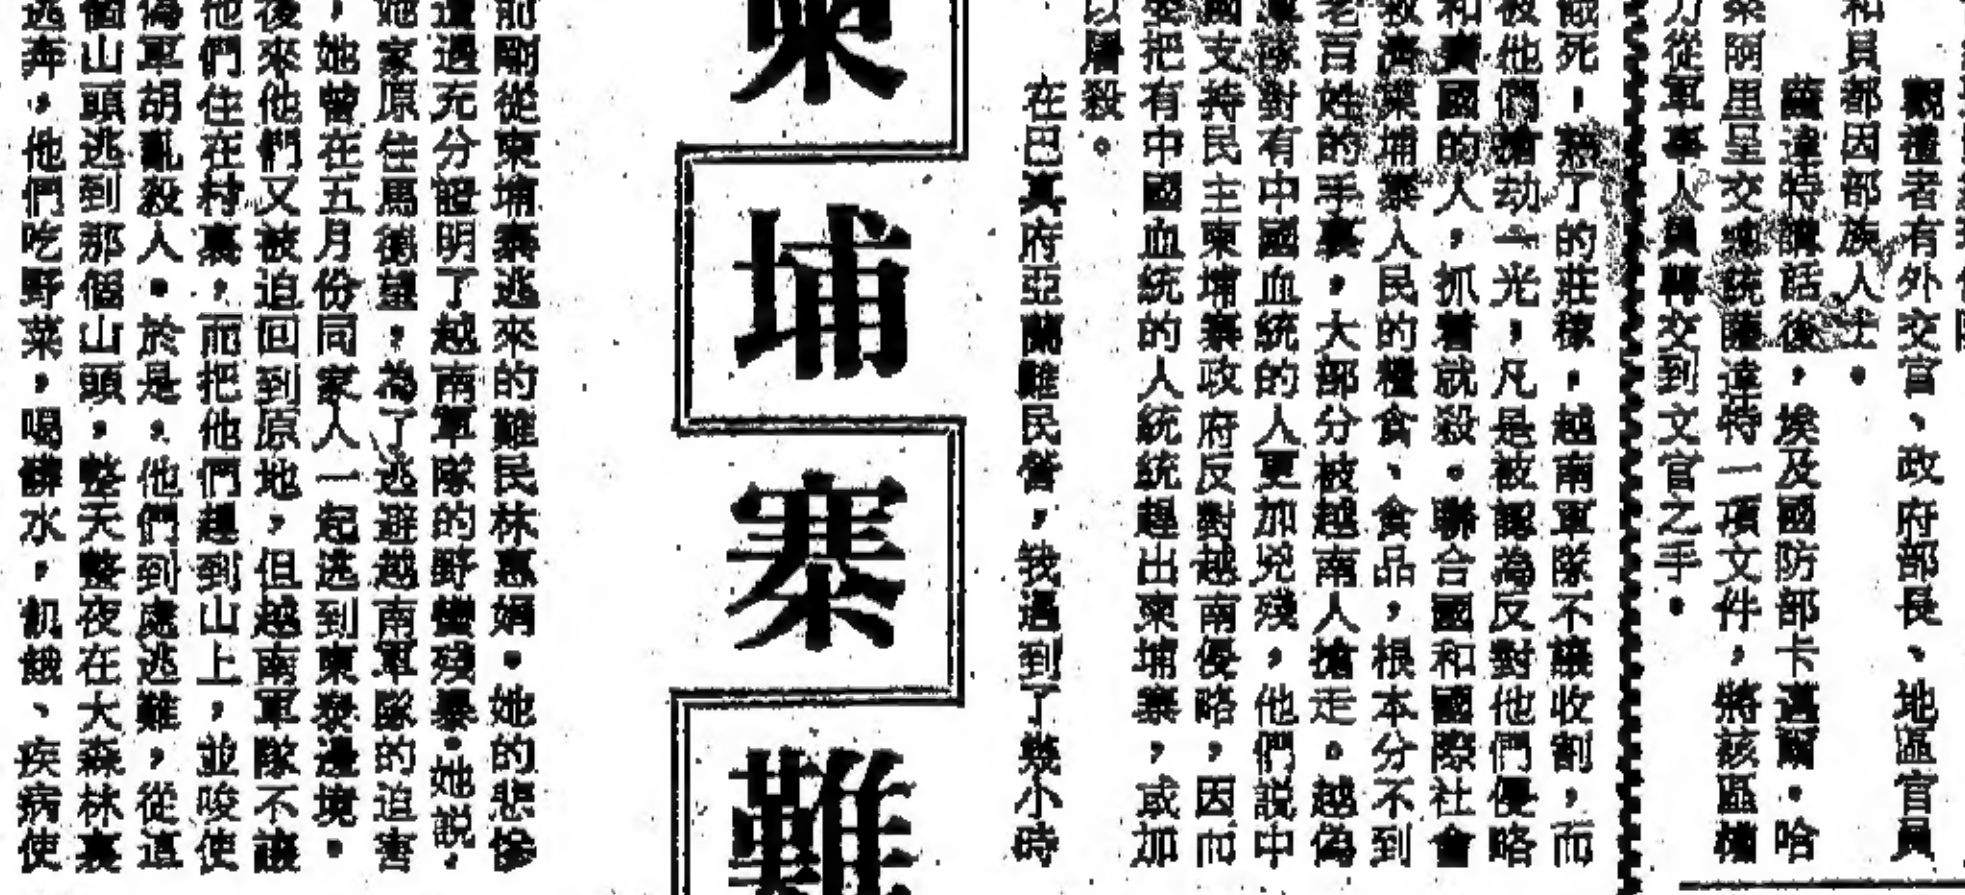 觀禮者有外交官、政府部長、地區官員
和貝都因部族人士。
薩達特講話後,埃及國防部卡邁爾·哈
桑阿里呈交總統薩達特一項文件,將該區權
力從軍事人員轉交到文官之手。
餓死,熟了的莊稼,越南軍隊不讓收割,而
被他們搶劫一光,凡是被認為反對他們侵略
和賣國的人,抓着就殺。聯合國和國際社會
救濟柬埔寨人民的糧食、食品,根本分不到
老百姓的手裏,大部分被越南人搶走。越偽
對有中國血統的人更加兇殘,他們説中
國支持民主柬埔寨政府反對越南侵略,因而
要把有中國血統的人統統趕出柬埔寨,或加
以屠殺。
在巴真府亞蘭難民營,我遇到了幾小時
柬埔寨難
前剛從柬埔寨逃來的難民林惠娟。她的悲慘
遭遇充分證明了越南軍隊的野蠻殘暴。她説,
她家原住馬德望,為了逃避越南軍隊的迫害
,她曾在五月份同家人一起逃到柬泰邊境。
後來他們又被迫回到原地,但越南軍隊不讓
他們住在村裏,而把他們趕到山上,並唆使
偽軍胡亂殺人。於是,他們到處逃難,從這
個山頭逃到那個山頭,整天整夜在大森林裏
逃奔,他們吃野菜,喝髒水,飢餓、疾病使